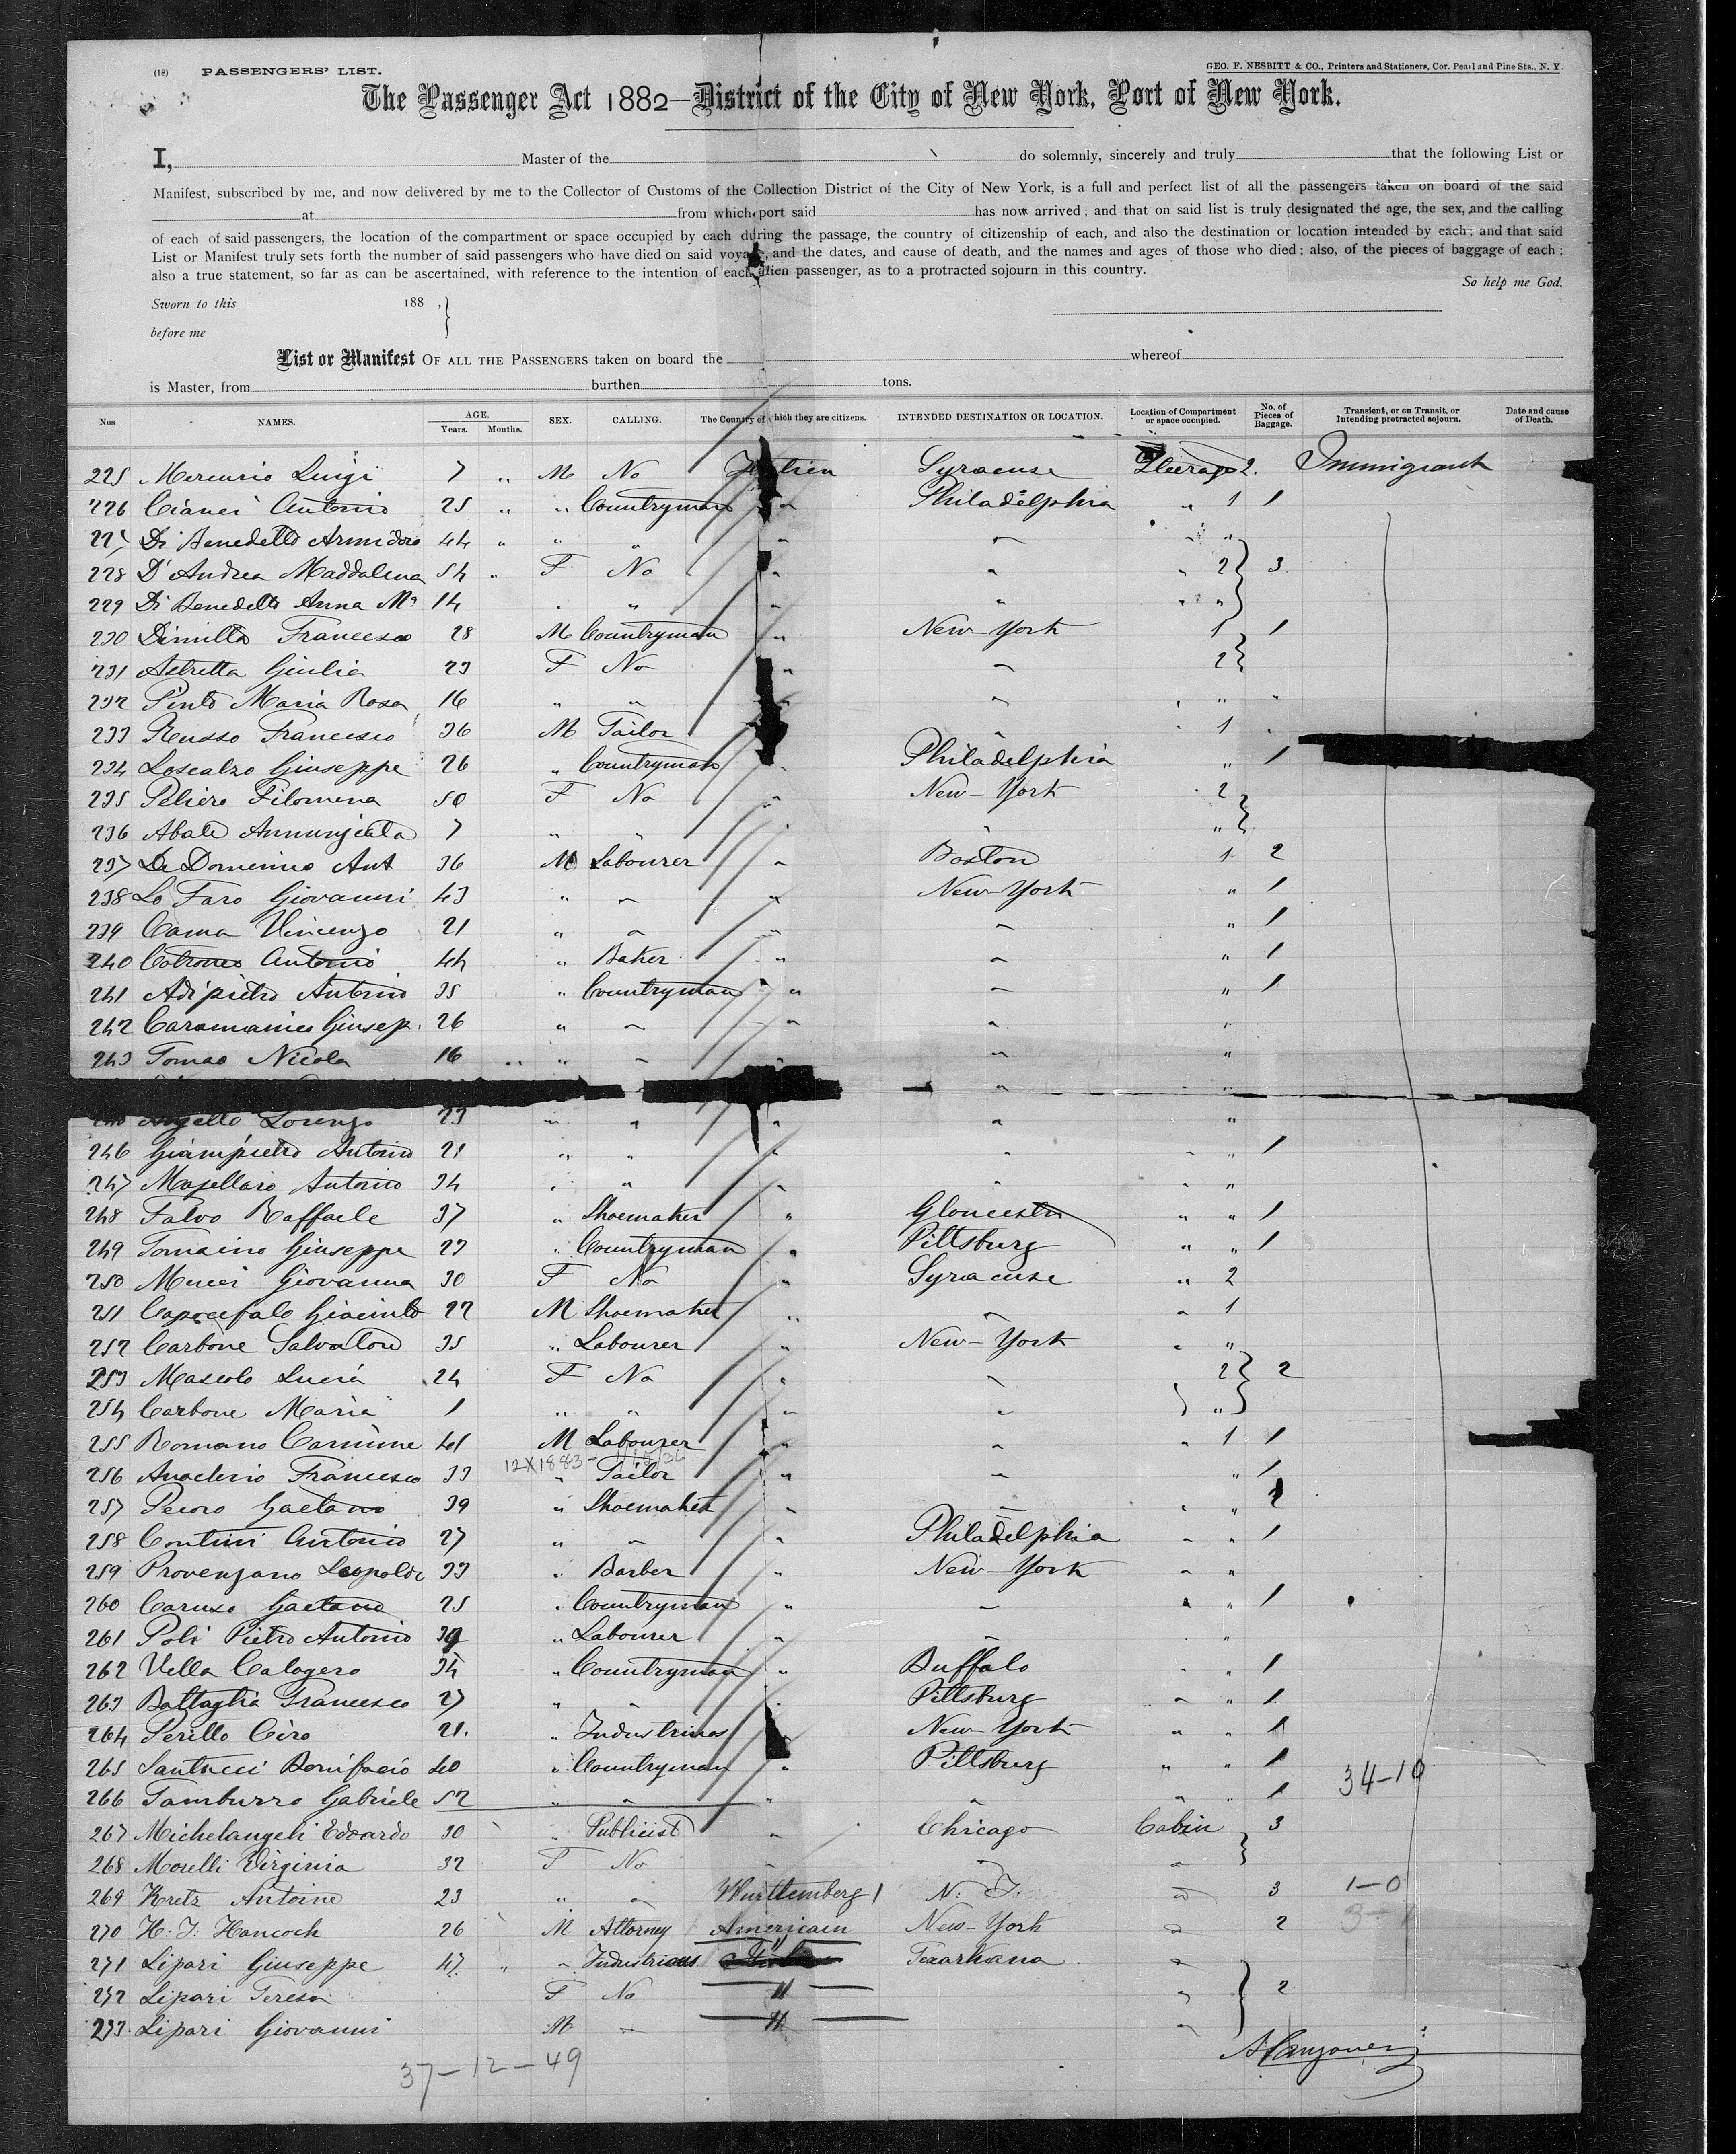 (18) PASSENGERS' LIST. GEO. F. NESBITT & CO., Printers and Stationers, Cor. Pearl and Pine Sts., N. Y.
The Passenger Act 1882—District of the City of New York, Port of New York.
I, Master of the do solemnly, sincerely and truly that the following List or
Manifest, subscribed by me, and now delivered by me to the Collector of Customs of the Collection District of the City of New York, is a full and perfect list of all the passengers taken on board of the said
at from which port said has now arrived; and that on said list is truly designated the age, the sex, and the calling
of each of said passengers, the location of the compartment or space occupied by each during the passage, the country of citizenship of each, and also the destination or location intended by each; and that said
List or Manifest truly sets forth the number of said passengers who have died on said voyage, and the dates, and cause of death, and the names and ages of those who died; also, of the pieces of baggage of each;
also a true statement, so far as can be ascertained, with reference to the intention of each alien passenger, as to a protracted sojourn in this country.
So help me God.
Sworn to this 188 ,
before me
List or Manifest OF ALL THE PASSENGERS taken on board the whereof
is Master, from burthen tons.
Nos NAMES. AGE. Years. Months. SEX. CALLING. The Country of which they are citizens. INTENDED DESTINATION OR LOCATION. Location of Compartment or space occupied. No. of Pieces of Baggage. Transient, or on Transit, or Intending protracted sojourn. Date and cause of Death.
225 Mercurio Luigi 7 " M No Italien Syracuse Steerage 2. Immigrant
226 Cianci Antonio 25 " " Countryman " Philadelphia " 1 1
227 Di Benedetto Armidoro 44 " " " " " " "
228 D'Andrea Maddalena 54 " F No " " " 2 3
229 Di Benedetto Anna Ma 14 " " " " " "
230 Dimitto Francesco 28 M Countryman " New-York 1 1
231 Astretta Giulia 23 F No " " 2
232 Pinto Maria Rosa 16 " " " " " "
233 Russo Francesco 36 M Tailor " " 1
234 Loscalzo Giuseppe 26 " Countryman " Philadelphia " 1
235 Peliero Filomena 50 F No " New-York 2
236 Abate Annunziata 7 " " " " "
237 De Domenico Ant 36 M Labourer " Boston 1 2
238 Lo Faro Giovanni 43 " " " New-York " 1
239 Cama Vincenzo 21 " " " " " 1
240 Cotroneo Antonio 44 " Baker " " " 1
241 Adipietro Antonio 35 " Countryman " " " 1
242 Caramanico Giusep. 26 " " " " "
243 Tomao Nicola 16 " " " " " "
Lorenzo 23 " " " " "
246 Giampietro Antonio 21 " " " " " " 1
247 Masellaro Antonio 34 " " " " " "
248 Falvo Raffaele 37 " Shoemaker " Gloucester " " 1
249 Tomaino Giuseppe 23 " Countryman " Pittsburg " " 1
250 Mucci Giovanna 30 F No " Syracuse " 2
251 Capocefalo Giacinto 22 M Shoemaker " " " 1
252 Carbone Salvatore 35 " Labourer " New-York " "
253 Mascolo Lucia 24 F No " " 2 2
254 Carbone Maria 1 " " " " "
255 Romano Carmine 41 M Labourer " " " 1 1
12X1883-
256 Anaclerio Francesco 33 " Tailor " " " 1
257 Pecoro Gaetano 39 " Shoemaker " " " " 1
258 Contini Antonio 27 " " " Philadelphia " " 1
259 Provenzano Leopoldo 33 " Barber " New-York " "
260 Caruso Gaetano 25 " Countryman " " " " 1
261 Poli Pietro Antonio 39 " Labourer " " "
262 Vella Calogero 34 " Countryman " Buffalo " " 1
263 Battaglia Francesco 27 " " " Pittsburg " " 1
264 Perillo Ciro 21 " Industrious " New-York " " 1
265 Santucci Bonifacio 40 " Countryman " Pittsburg " " 1
34-10
266 Tamburro Gabriele 52 " " " " " " 1
267 Michelangeli Edoardo 30 " Publicist " Chicago Cabin 3
268 Moselli Virginia 32 F No " " "
269 Kretz Antoine 23 " " Wurttemberg 1 N. J. " 3 1-0
270 H. J. Hancock 26 M Attorney American New-York " 2
271 Lipari Giuseppe 47 " " Industrious " Texarkana "
272 Lipari Teresa F No " " 2
273 Lipari Giovanni M " " "
37-12-49